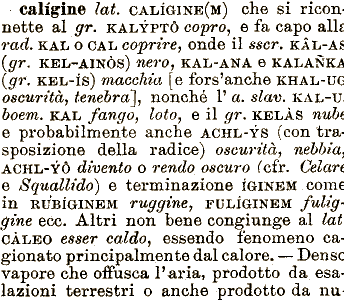 caligine lat. CALÍGINE(M) che si ricon-
nette al gr. KALYPTÔ copro, e fa capo alla
rad. KAL o CAL coprire, onde il sscr. KÂL-AS
(gr. KEL-AINÒS) nero, KAL-ANA e KALAÑKA
(gr. KEL-ís) macchia [e fors'anche KHAL-UG
oscurità, tenebra], nonché l'a. slav. KAL-U.
boem. KAL fango, loto, e il gr. KELÀS nube
e probabilmente anche ACHL-ỲS (con tra-
sposizione della radice) oscurità, nebbia,
ACHL-ỲÔ divento o rendo oscuro (cfr. Celare
e Squallido) e terminazione ÍGINEM come
in RUBÍGINEM ruggine, FULÍGINEM fulig-
gine ecc. Altri non bene congiunge al lat
CÀLEO esser caldo, essendo fenomeno ca-
gionato principalmente dal calore. — Denso
vapore che offusca l'aria, prodotto da esa-
lazioni terrestri o anche prodotto da nu-